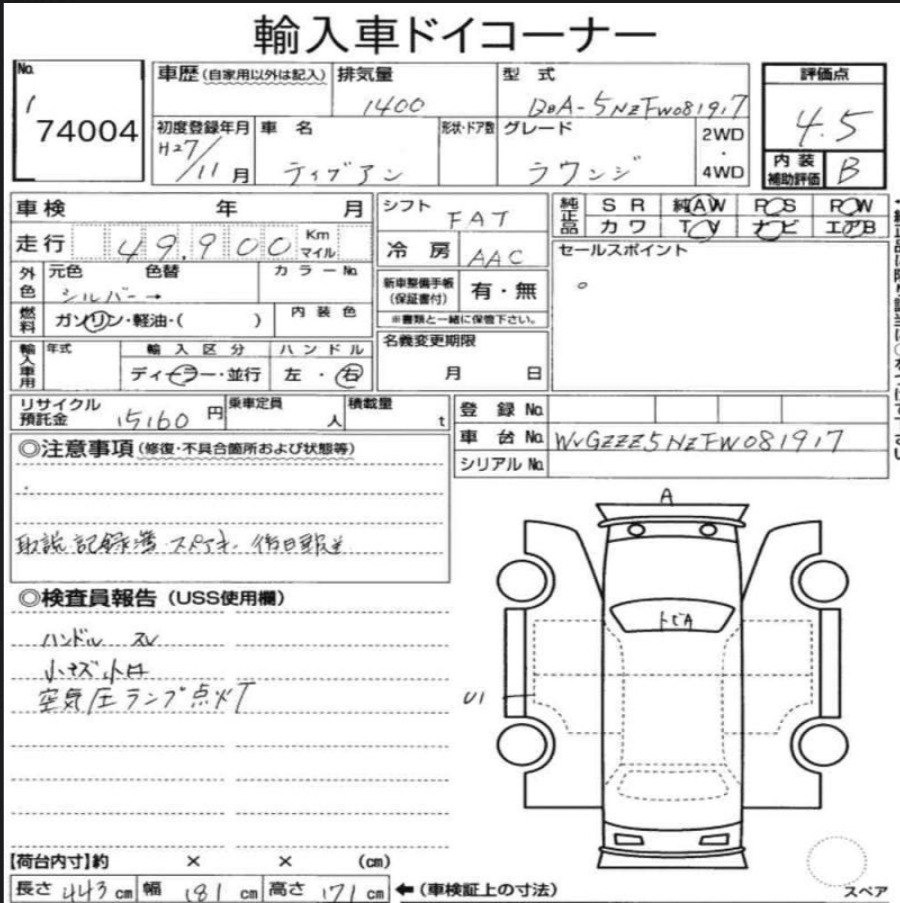 輸入車ドイコーナー
No. 1 74004
車歴 (自家用以外は記入) 排気量 1400 型式 DBA-5NZFW081917
評価点 4.5
初度登録年月 H27/11月 車名 ティグアン 形状・ドア数 グレード ラウンジ 2WD・4WD
内装補助評価 B
車検 年 月 シフト FAT
純正品 SR 純AW P○S R○W
カワ TV ナビ エアB
走行 49,900 Km マイル 冷房 AAC
セールスポイント
外色 元色 色替 カラーNo.
シルバー→
新車整備手帳(保証書付) 有・無
※書類と一緒に保管下さい。
燃料 ガソリン・軽油・( ) 内装色
名義変更期限 月 日
輸入車用 年式 輸入区分 ハンドル
ディーラー・並行 左・右
リサイクル預託金 15160円 乗車定員 人 積載量 t
登録No.
車台No. WVGZZZ5NZFW081917
シリアルNo.
◎注意事項(修復・不具合箇所および状態等)
取説 記録簿 スペアキー 後日郵送
◎検査員報告 (USS使用欄)
ハンドル スレ
小キズ 小凹
空気圧ランプ点灯
A
トビA
U1
【荷台内寸】約 × × (cm)
長さ 443 cm 幅 181 cm 高さ 171 cm ←(車検証上の寸法)
スペア